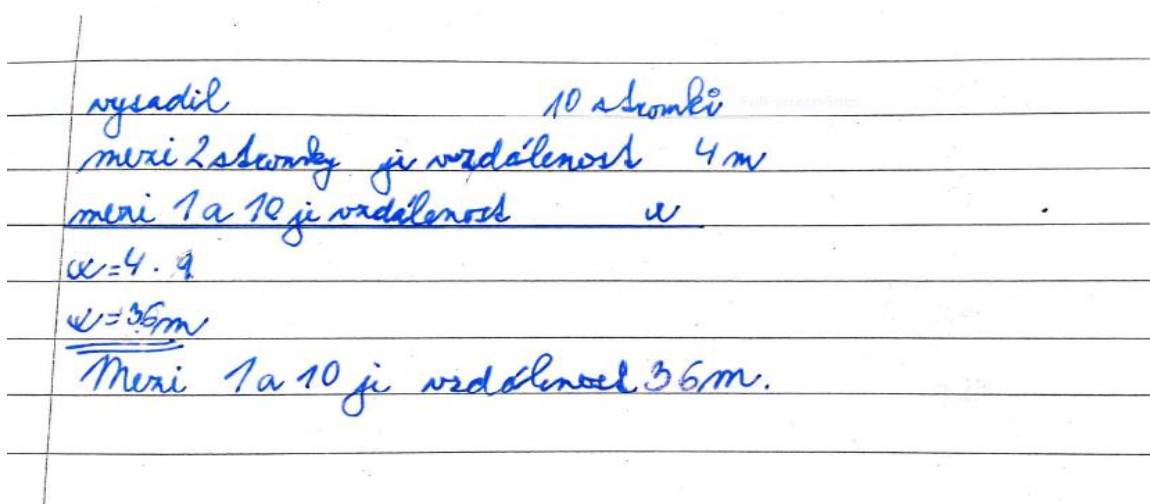 vysadil 10 stromků
mezi 2 stromky je vzdálenost 4 m
mezi 1 a 10 je vzdálenost x
x=4 · 9
x=36m
Mezi 1 a 10 je vzdálenost 36m.